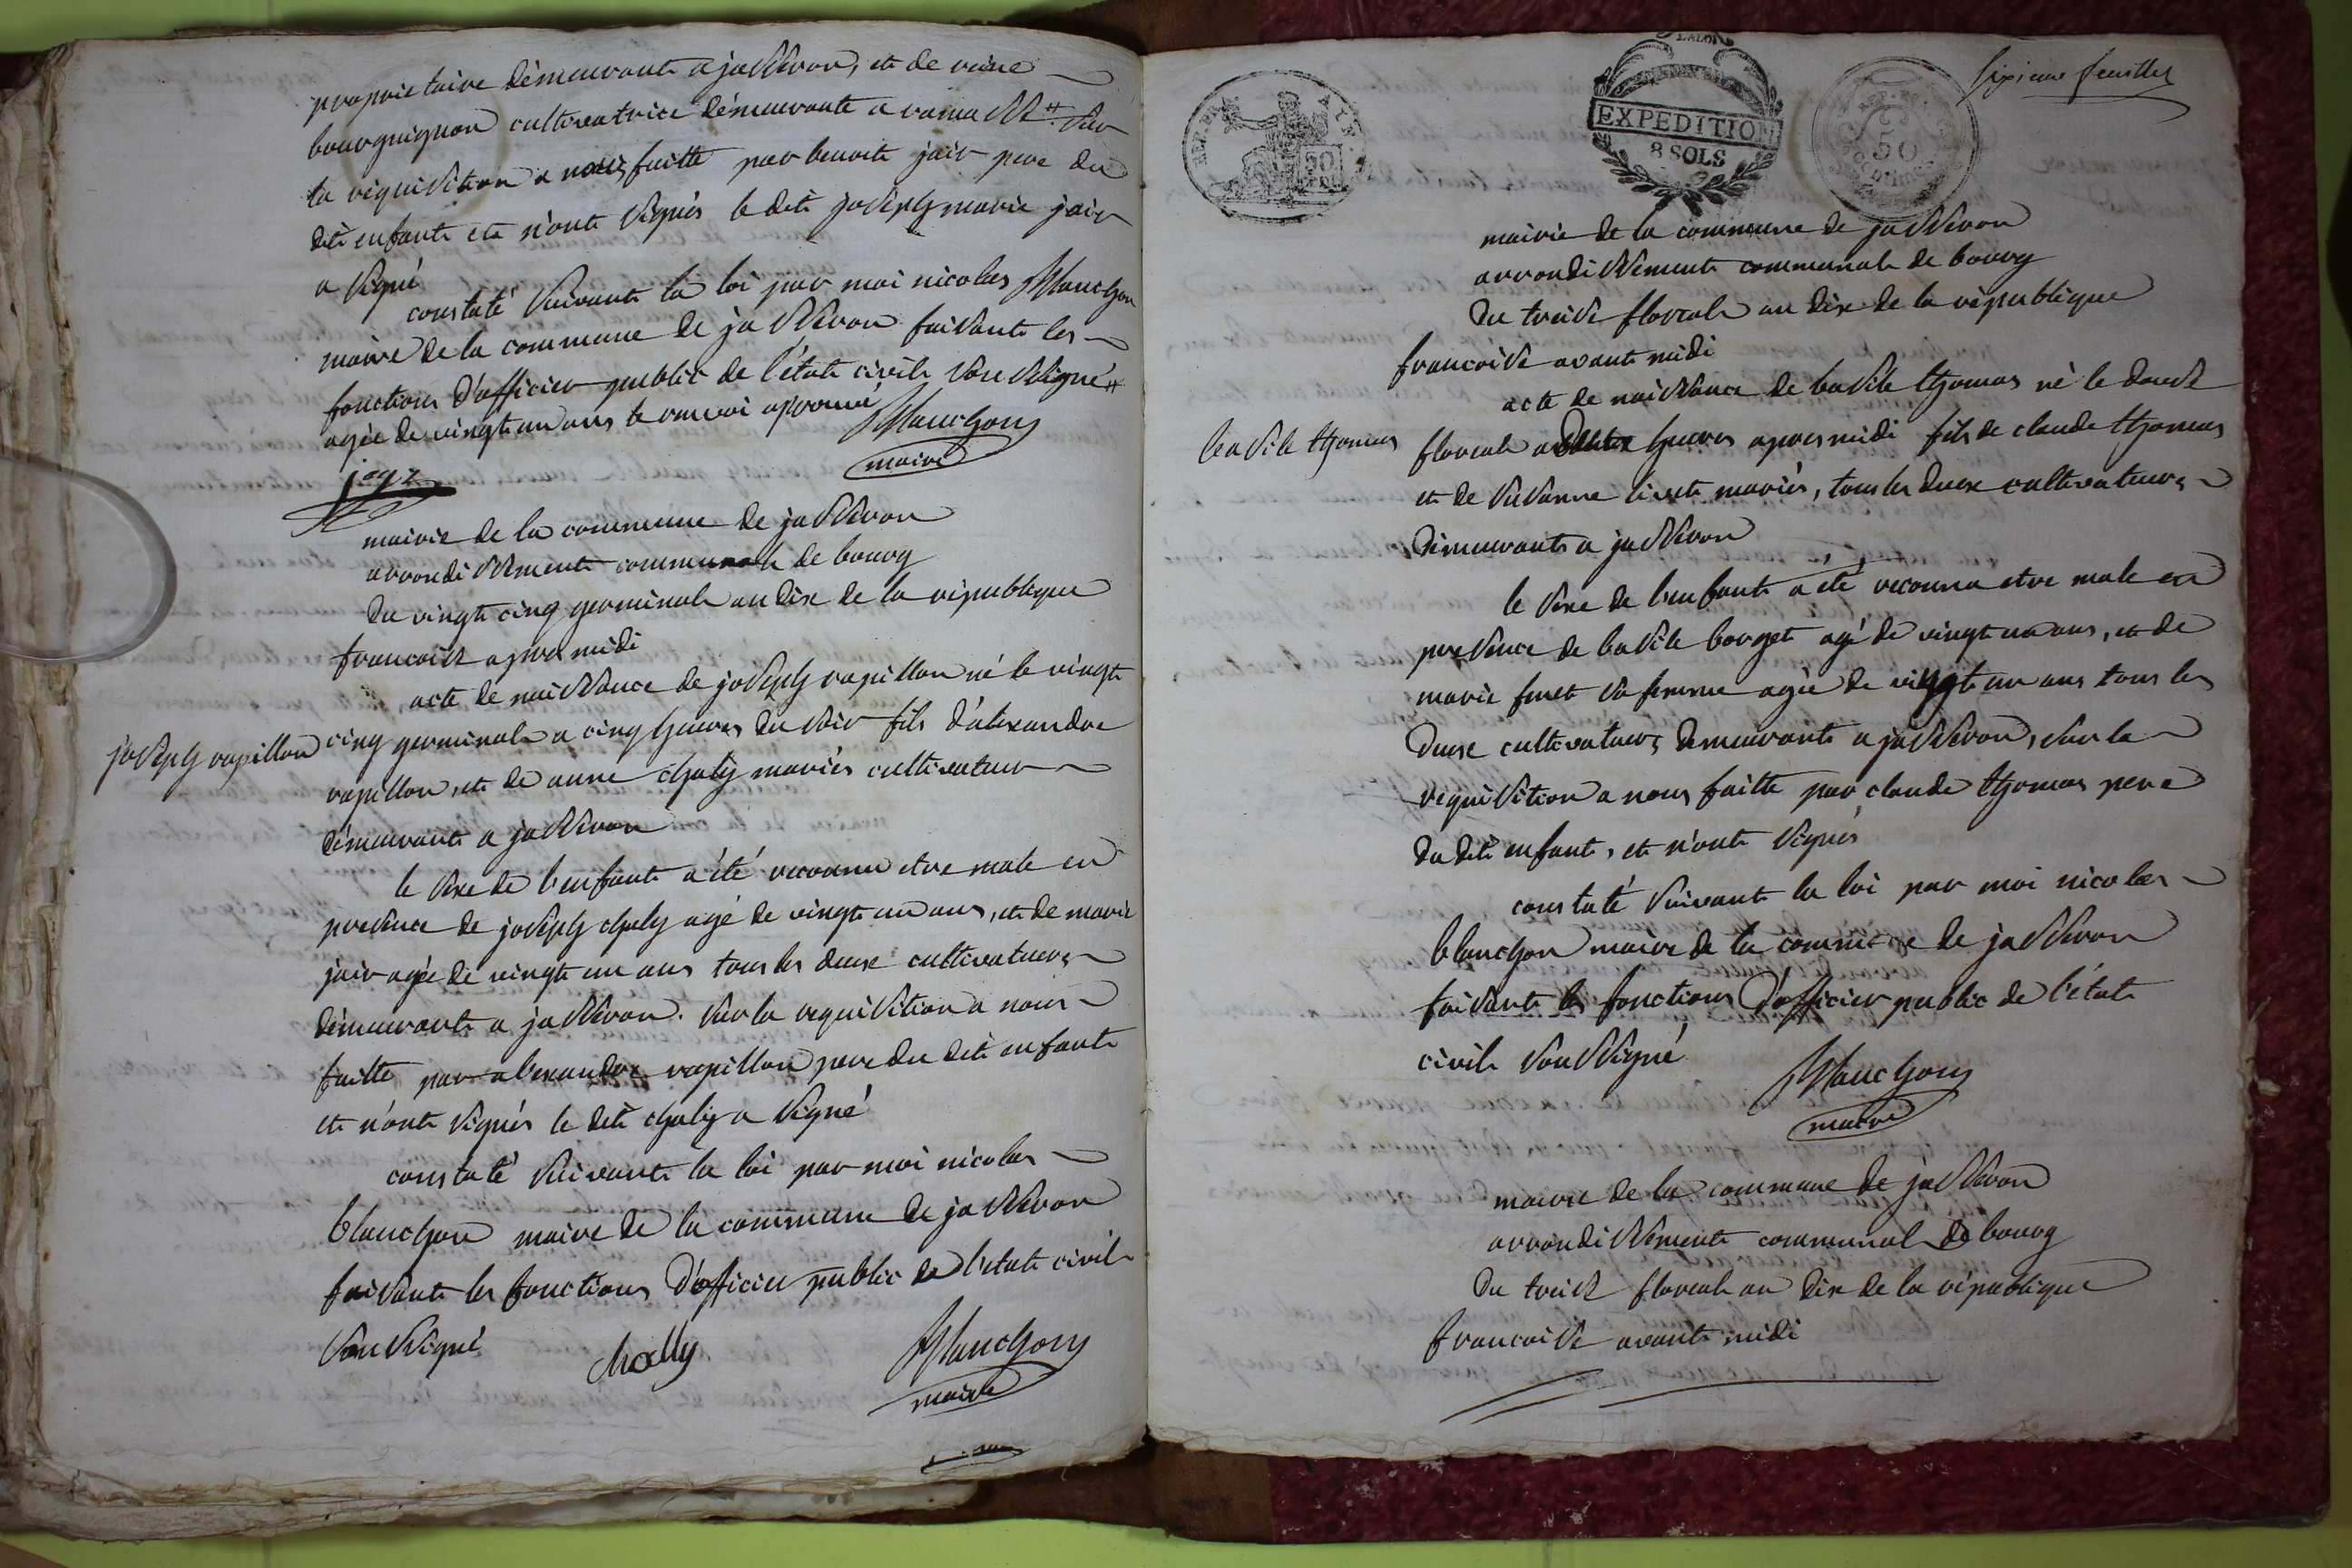 proprietaire démeurant a jasseron, et de reine
bourguignon cultivatrice démeurante a ramasse # sur
la réquisition a nous faitte par benoit jair pere du
dit enfant et n'ont signés le dit joseph marie jair
a signé
constaté suivant la loi par moi nicolas Blanchon
maire de la commune de jasseron faisant les
fonctions d'officier public de l'état civil soussigné #
agée de vingt un ans le renvoi aprouvé Blanchon
maire
mairie de la commune de jasseron
arrondissement communal de bourg
du vingt cinq germinal an dix de la république
francoise apres midi
acte de naissance de joseph rapillon né le vingt
joseph rapillon
cinq germinal a cinq heures du soir fils d'alexandre
rapillon, et de anne chaly mariés cultivateur
démeurant a jasseron
le sexe de l'enfant a été reconnu etre male en
presence de joseph chaly agé de vingt un ans, et de marie
jair agée de vingt un ans tous les deux cultivateurs
démeurant a jasseron. sur la requisition a nous
faitte par alexandre rapillon pere du dit enfant
et n'ont signés le dit chaly a signé
constaté suivant la loi par moi nicolas
blanchon maire de la commune de jasseron
faisant les fonctions d'officier public de l'état civil
soussigné Chally Blanchon
maire
sixieme feuillet
REP. FRA.
50
LA LOI
EXPEDITION
8 SOLS
50
mairie de la commune de jasseron
arrondissement communal de bourg
du treise floreal an dix de la république
francoise avant midi
acte de naissance de basile thomas né le douse
basile thomas
floreal a heures apres midi fils de claude thomas
et de susanne mariés, tous les deux cultivateurs
démeurant a jasseron
le sexe de l'enfant a été reconnu etre male en
presence de basile borget agé de vingt un ans, et de
marie furet sa femme agée de vingt un ans tous les
deux cultivateurs demeurant a jasseron, sur la
requisition a nous faitte par claude thomas pere
du dit enfant, et n'ont signés
constaté suivant la loi par moi nicolas
blanchon maire de la commune de jasseron
faisant les fonctions d'officier public de l'état
civil soussigné Blanchon
maire
mairie de la commune de jasseron
arrondissement communal de bourg
du treise floreal an dix de la république
francoise avant midi